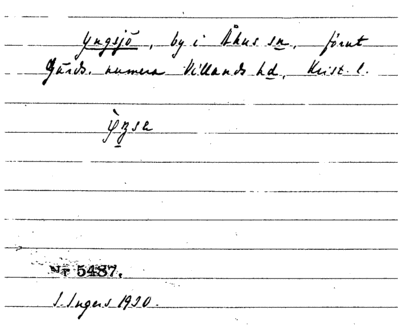 Yngsjö, by i Åhus sn, förut
Gärds, numera Villands hd, Krist. l.
Nr 5487.
I. Ingers 1930.